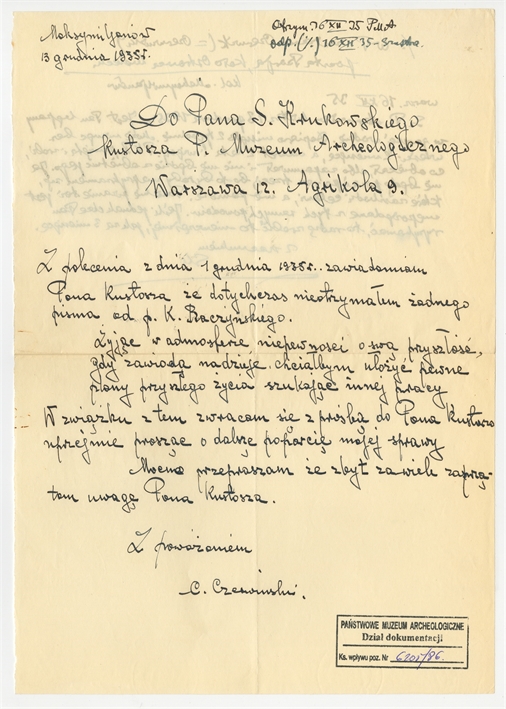 Maksymiljanów
13 grudnia 1935r.
Otrzym. 16 XII 35 PMA
odp. (1/.) 16 XII 35 -
Do Pana S. Krukowskiego
Kustosza P. Muzeum Archeologicznego
Warszawa 12. Agrikola 9.
Z polecenia z dnia 1 grudnia 1935r. zawiadamiam
Pana Kustosza że dotychczas nieotrzymałem żadnego
pisma od p. K. Raczyńskiego.
Żyjąc w admosferze niepewności o swą przyszłość,
gdy zawiodą nadzieje. chciałbym ułożyć pewne
plany przyszłego życia szukając innej pracy
W związku z tem zwracam się z prośbą do Pana Kustosza
uprzejmie prosząc o dalsze poparcie mojej sprawy
Mocno przepraszam że zbyt zawiele zaprzą-
tam uwagę Pana Kustosza.
Z poważaniem
C. Czerwiński.
PAŃSTWOWE MUZEUM ARCHEOLOGICZNE
Dział dokumentacji
Ks. wpływu poz. Nr 6205/86.